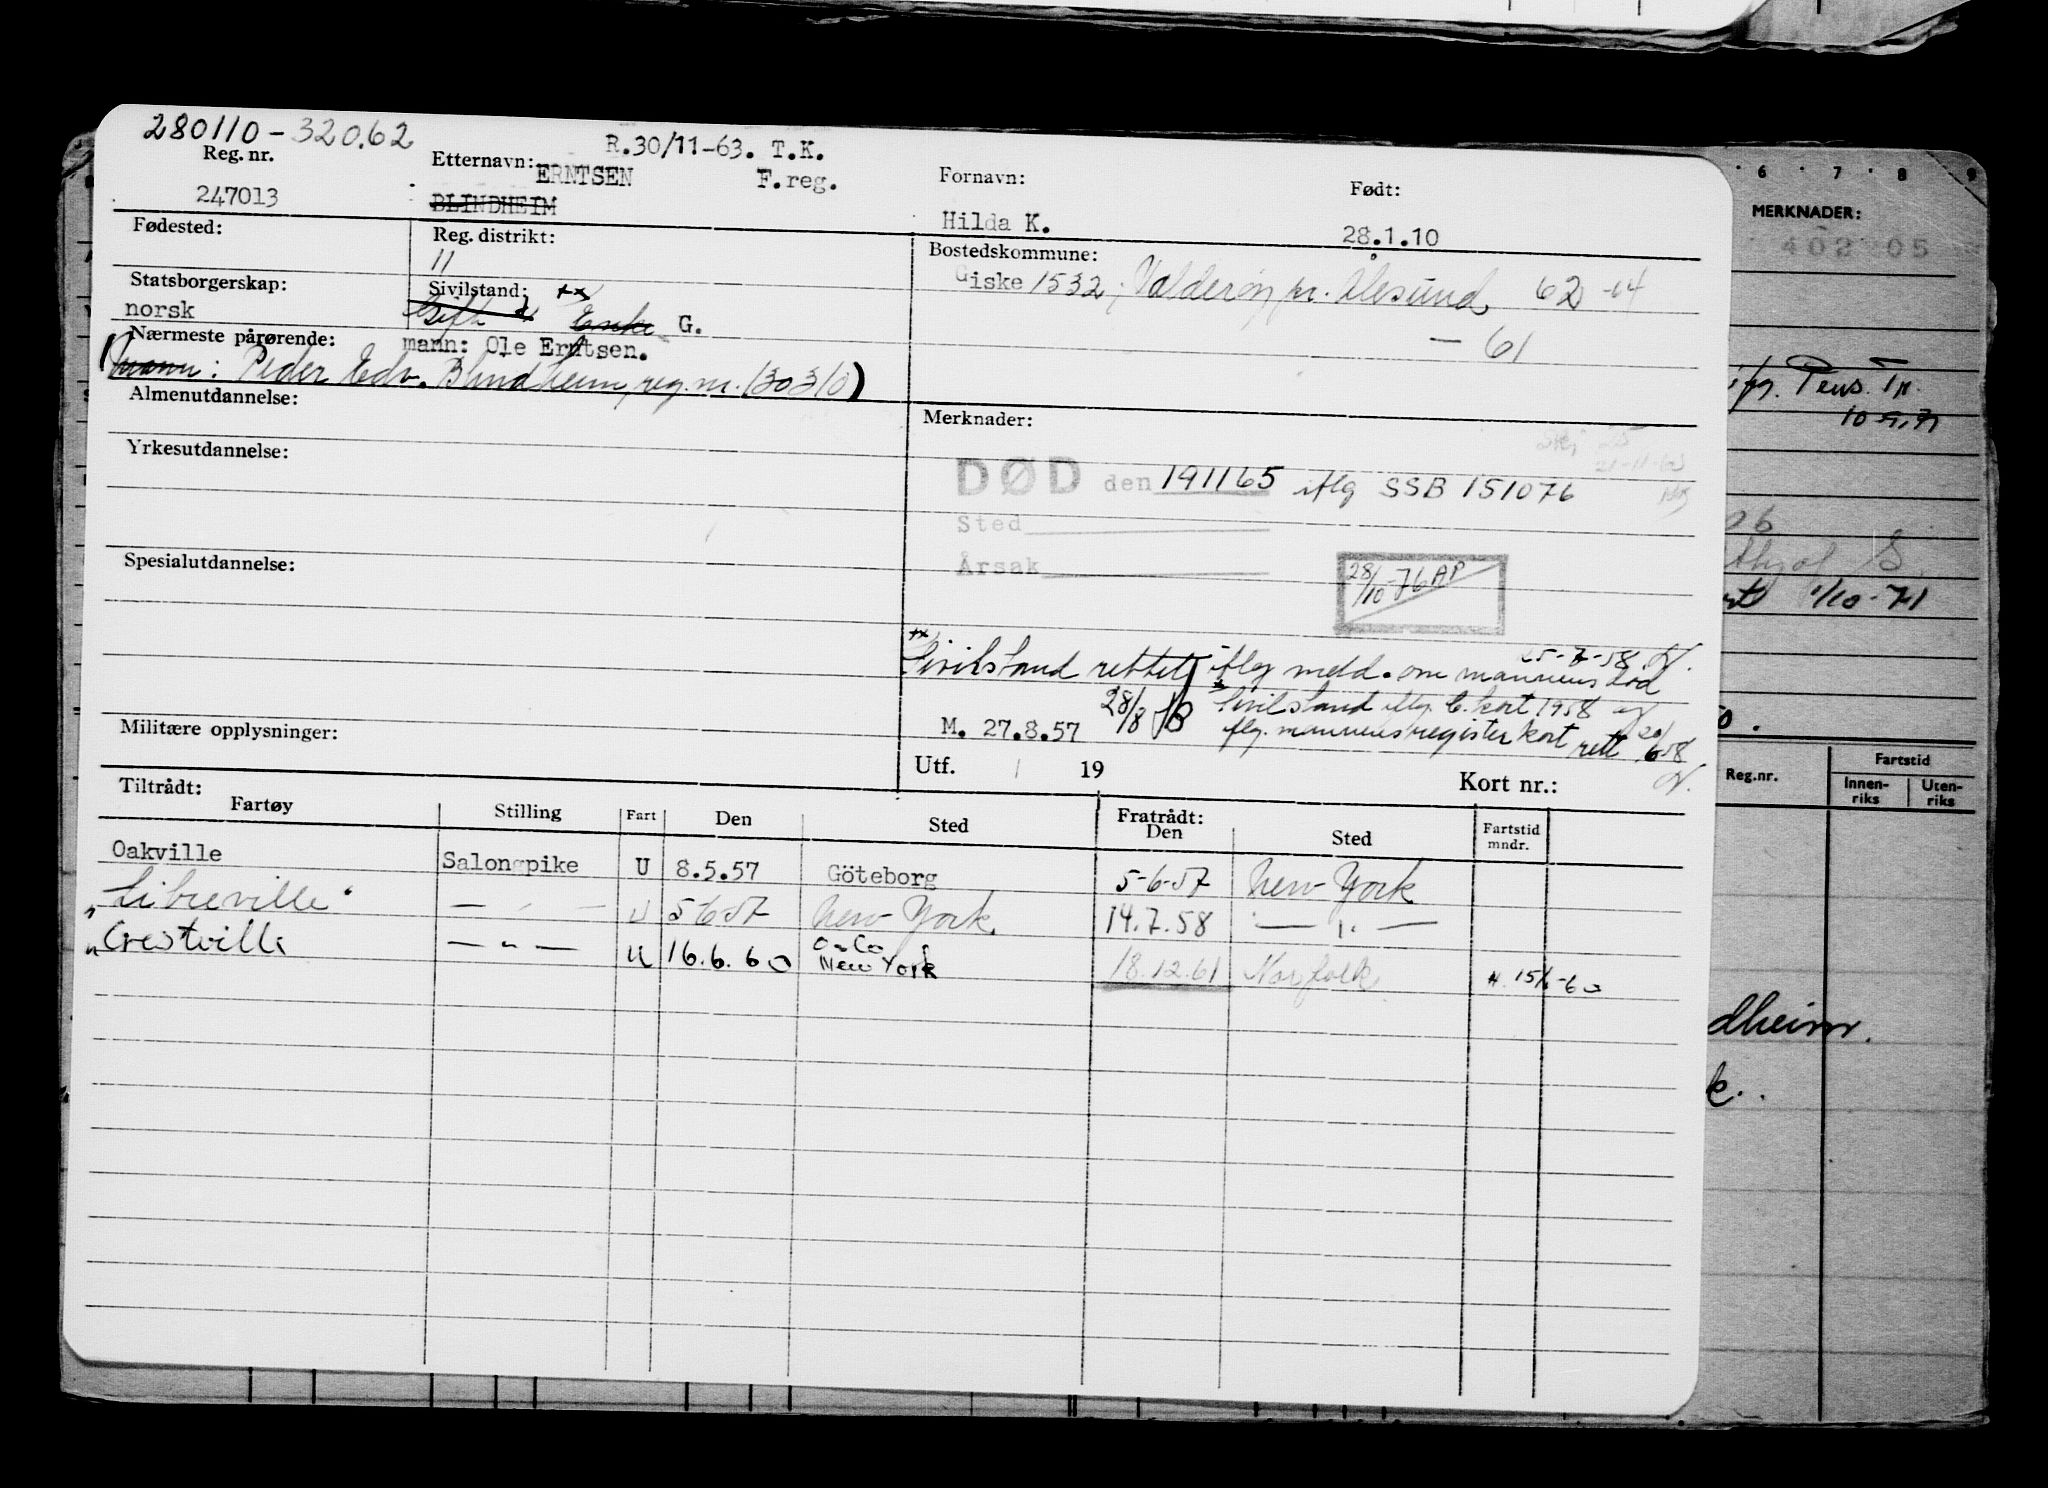 280110-32062
R.30/11-63. T.K.
Reg. nr. Etternavn: ERNTSEN F.reg. Fornavn: Født:
247013 BLINDHEIM Hilda K. 28.1.10
Fødested: Reg. distrikt: Bostedskommune:
11 Giske 1532, Valderøy pr. Ålesund 62-64
Statsborgerskap: Sivilstand: xx
norsk Gift x Enke G. - 61
Nærmeste pårørende: mann: Ole Erntsen.
(mann: Peder Edv. Blindheim, reg. nr. 130310)
Almenutdannelse: Merknader:
Yrkesutdannelse:
DØD den 191165 iflg SSB 151076
Sted
Årsak
Spesialutdannelse:
28/10-76 AP
25-7-58
xx Sivilstand rettet iflg meld. om mannens død
x Sivilstand iflg. C. kort 1958 og
M. 27.8.57 28/8 flg. mannens register kort rett 20/6 58
Militære opplysninger:
Utf. 19 Kort nr.:
Tiltrådt: Fratrådt:
Fartøy Stilling Fart Den Sted Den Sted Fartstid mndr.
Oakville Salongpike U 8.5.57 Göteborg 5-6-57 New York
"Libreville" — " — U 5657 New York 14.7.58 — " —
"Crestville — " — U 16.6.60 New York 18.12.61 Norfolk 15/6-60
6 7 8 9
MERKNADER:
402 05
Pens. Tr.
10
06
S.
1/10-71
50.
Reg.nr. Fartstid
Innenriks Utenriks
dheim.
k.